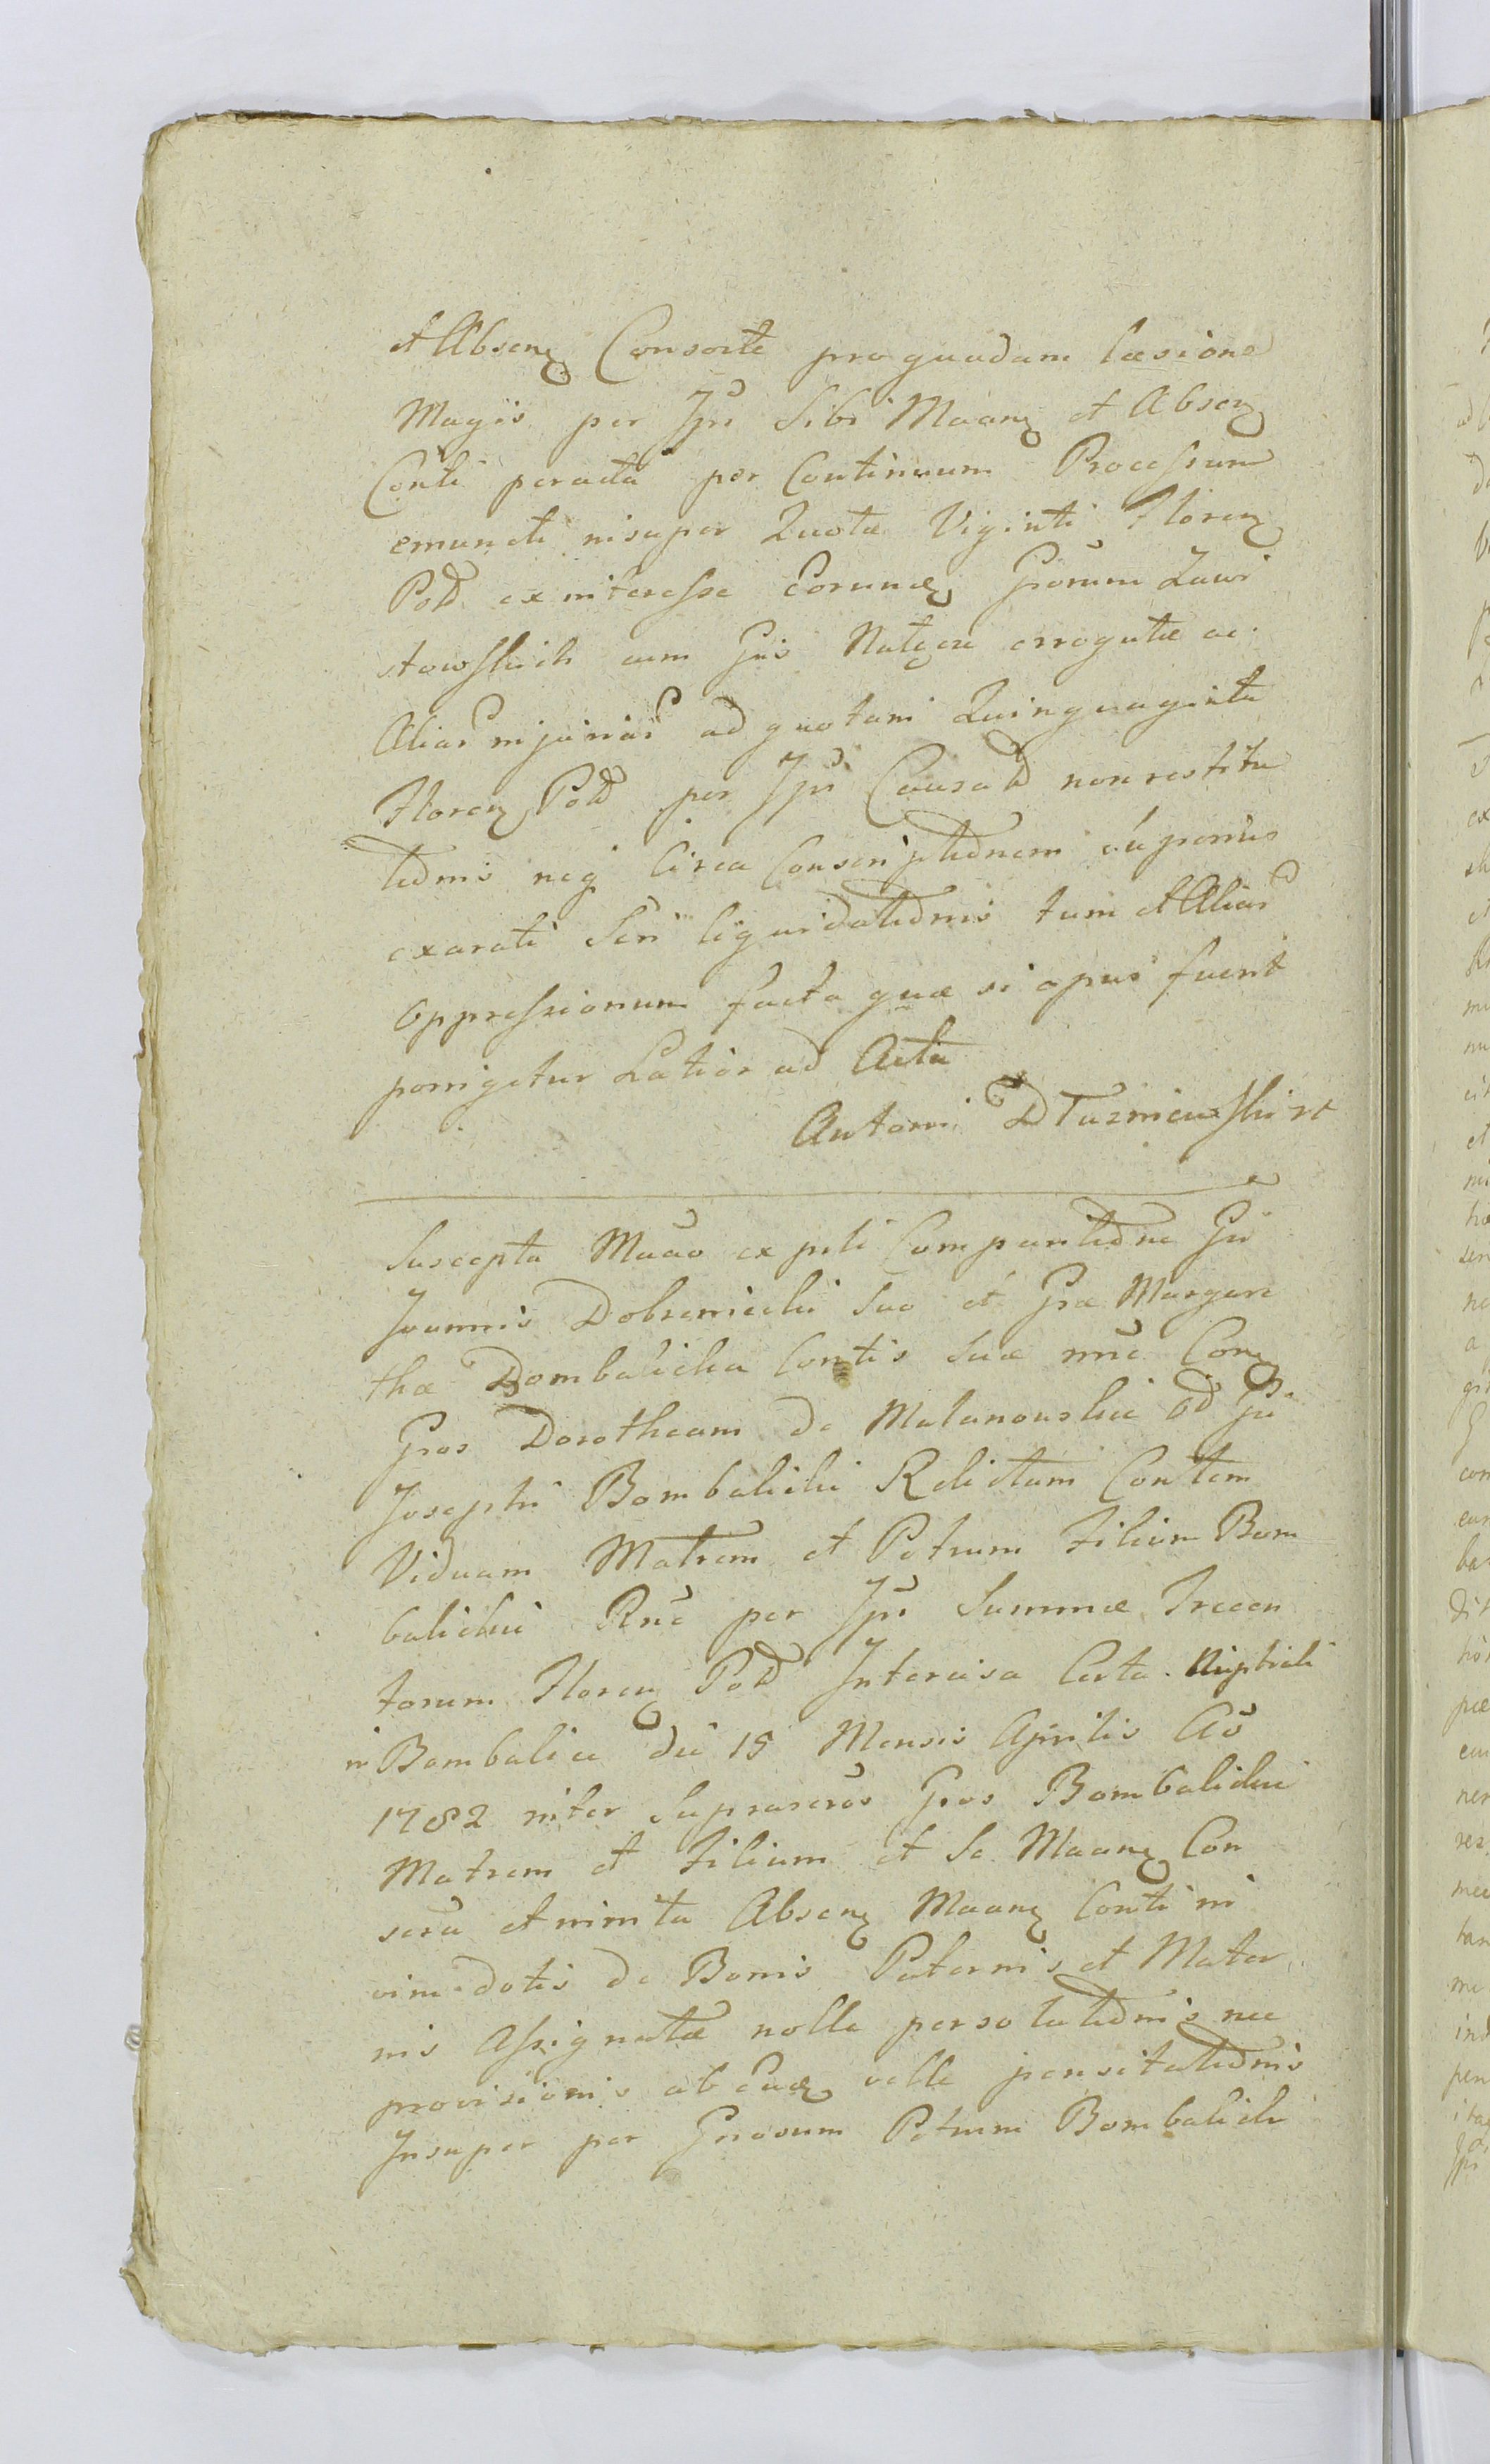 et Absenꝫ Consorte pro quadam læsione
Magis per Ipũ Sibi Maanꝫ et Absenꝫ
Conti peracta per Continuum Processum
emuncti insuper Quotæ Viginti Florenꝫ
Pold ex interesse Eorundꝫ Grorum Zawi
stowskich cum Gñs Natꝫ erogatæ ac
Alias injurias ad quotam Quinquaginta
Florenꝫ Pold per Ipũ Causatꝫ non restitu
tionis neq circa Conscriptionem
exarati Scri liquidationis tum et Alias
Oppressionum facta quæ si opus fuerit
porrigetur Latior ad Acta
Antoni D Tuzniewski
Suscepta Mããõ ex psti Comparitione Gñi
Joannis Dobrzenicki Suo et Gñæ Marga
thæ Dombalicka Contis Suæ nnẽ Conꝫ
Gros Dorotheam de Malanowskie Od Gñi
Josephi Bombalicki Relictam Contem
Viduam Matrem et Petrum Filium Bom
balicki Rnẽ per Ipũ Summæ Trecen
torum Florenꝫ Pold Intercisa Certa Nuptiali
in Bombalice die 15 Mensis Aprilis Aõ
1782 inter Suprascros Gros Bombalickie
Matrem et Filium et Se Maanꝫ Con
scra et inin ta Absenꝫ Maanꝫ Conti in
vim dotis de Bonis Paternis et Mater
nis Assignatæ nolle persolutionis nec
provisionis ab Eadꝫ velle pensitationis
Insuper per Grosum Petrum Bombalick